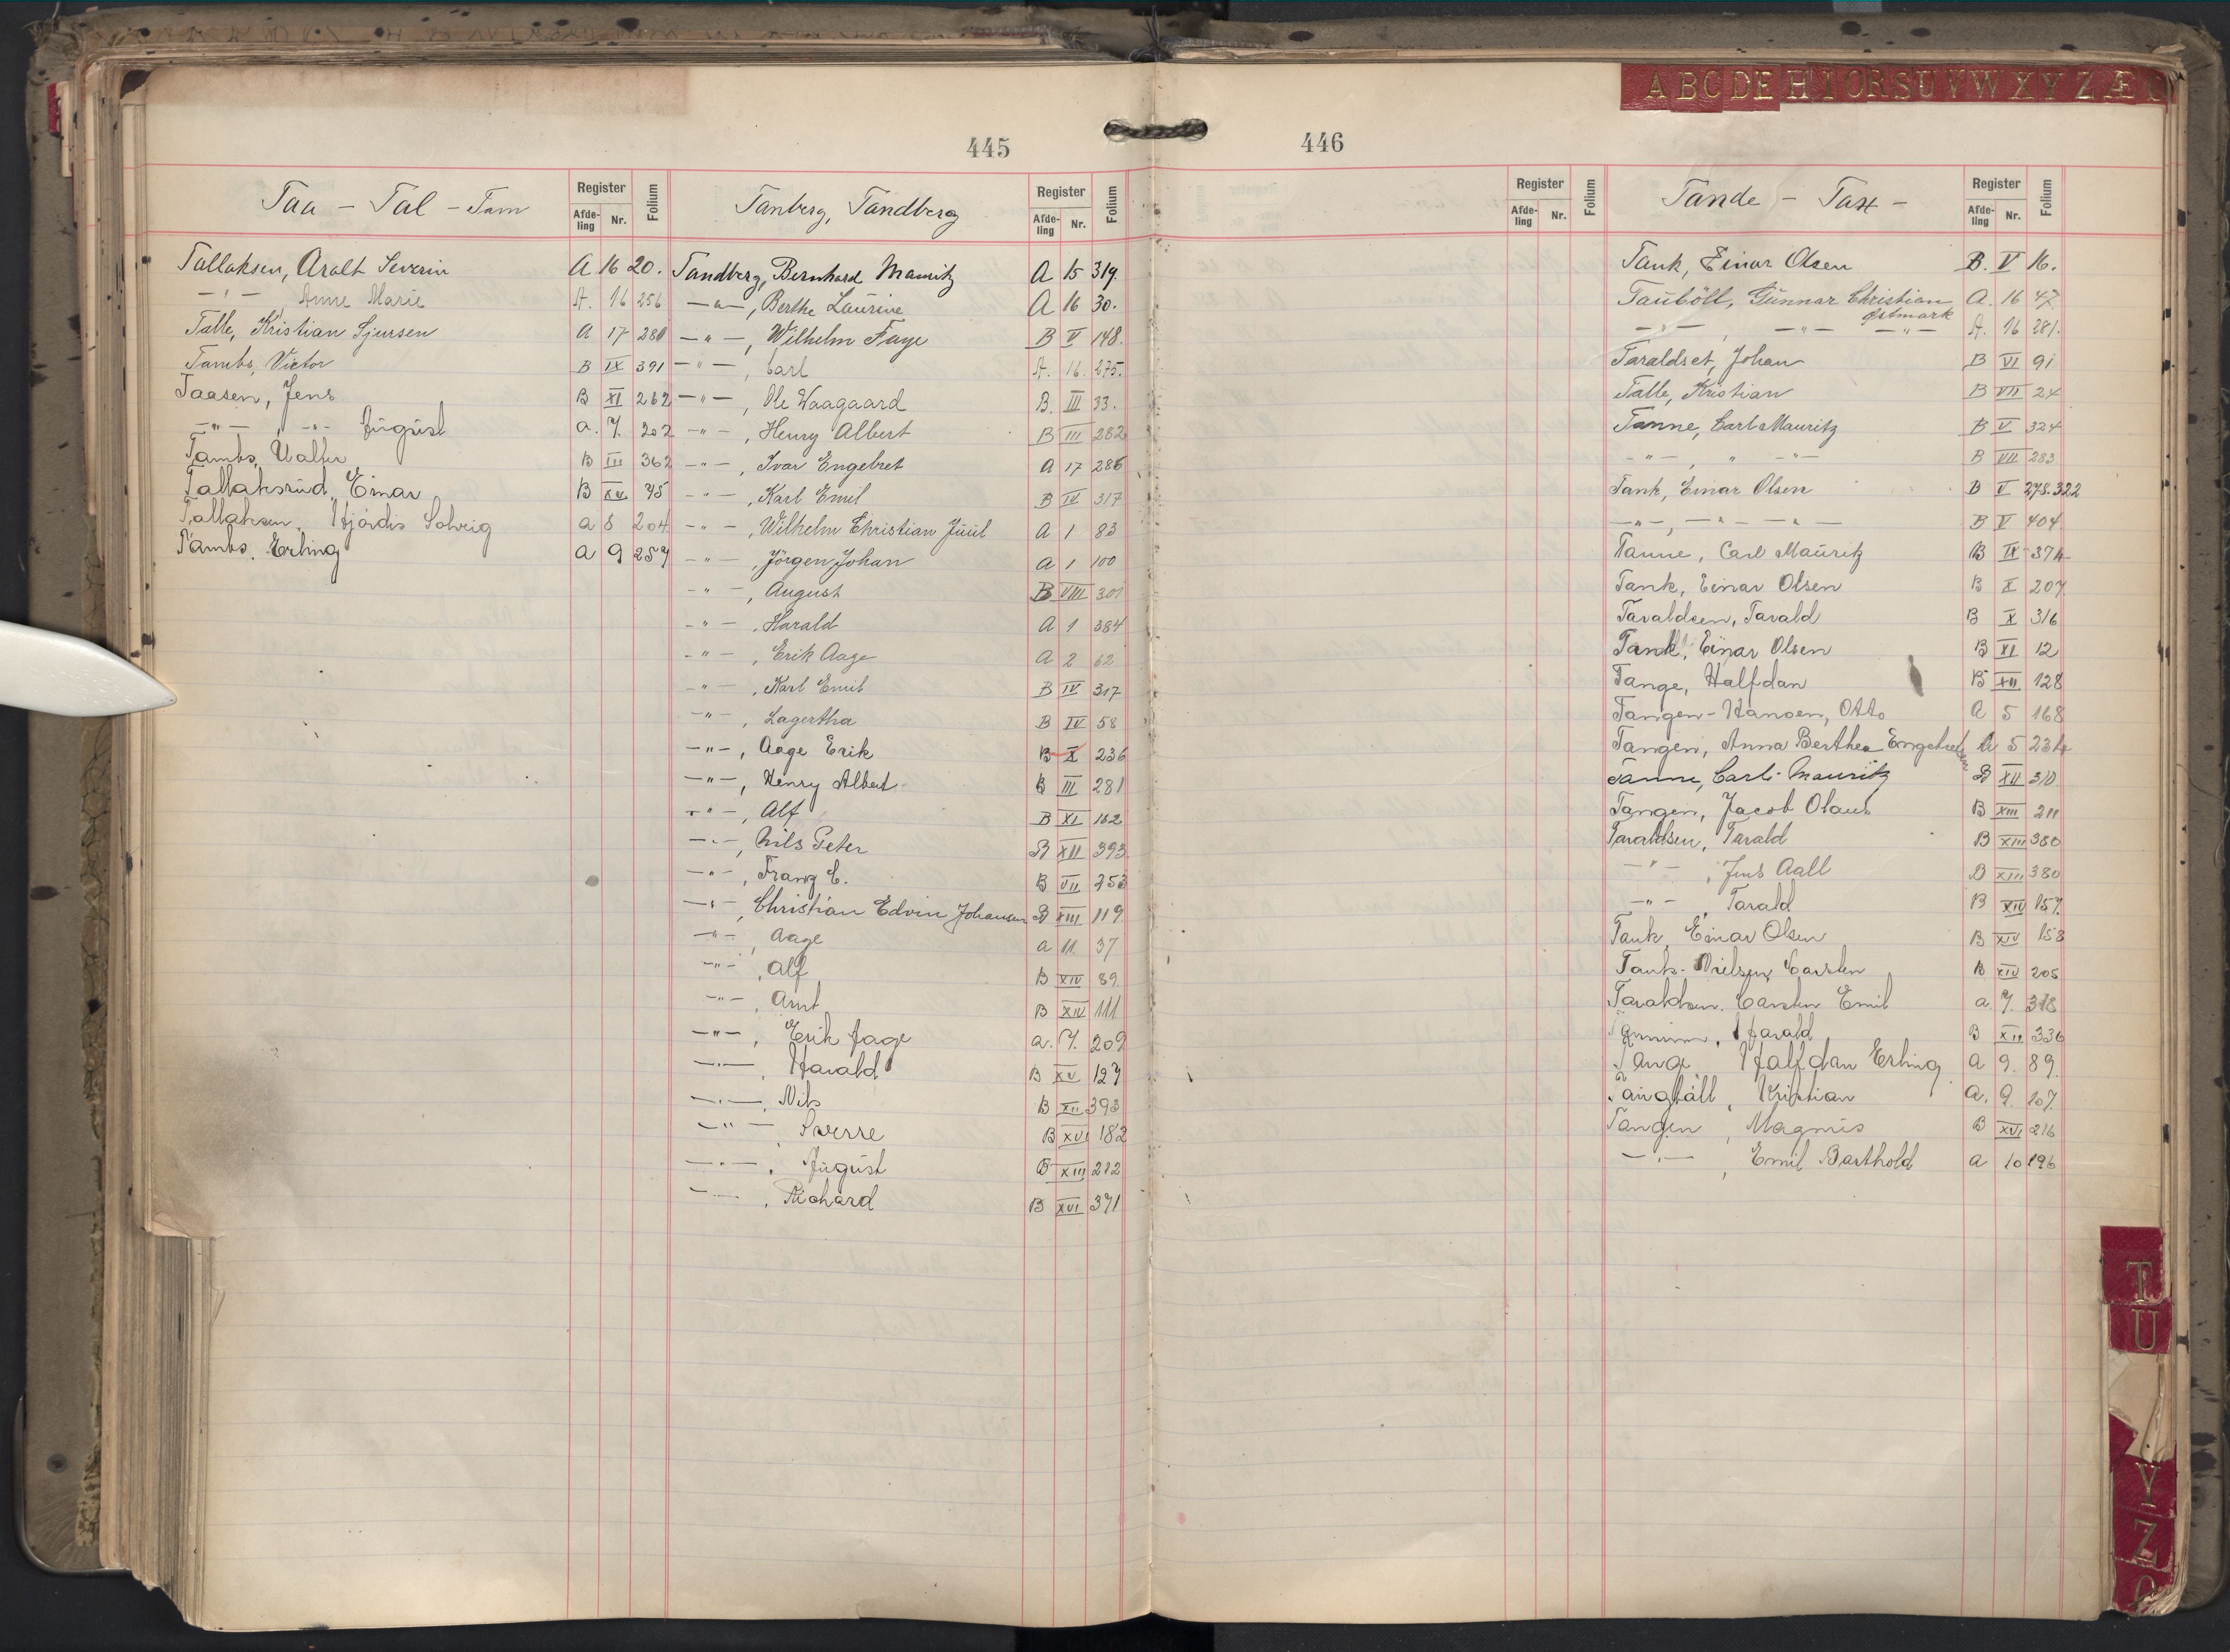 A B C D E H I O R S U V W X Y Z Æ
445
Taa - Tal - Tam
Register
Afde-ling Nr. Folium
Tallaksen, Aralt Severin A 16 20.
-"- , Anne Marie A. 16 256
Talle, Kristian Sjursen A 17 280
Tambs, Victor B IX 391
Taasen, Jens B XI 262
-"- , -"- August a. 7. 202
Tambs, Walter B III 362
Tallaksrud, Einar B XV 75
Tallaksen, Hjördis Solveig a 8 204
Tambs, Erling a 9 257
Tanberg, Tandberg
Register
Afde-ling Nr. Folium
Tandberg, Bernhard Mauritz A 15 319.
-"-, Berthe Laurine A 16 30.
-"-, Wilhelm Faye B V 148.
-"-, Carl A. 16. 275.
-"-, Ole Waagaard B. III 33.
-"-, Henry Albert B III 282
-"-, Ivar Engebret A 17 286
-"-, Karl Emil B IV 317
-"-, Wilhelm Christian Juul A 1 83
-"-, Jörgen Johan A 1 100
-"-, August B VIII 301
-"-, Harald A 1 384
-"-, Erik Aage A 2 62
-"-, Karl Emil B IV 317
-"-, Lagertha B IV 58
-"-, Aage Erik B X 236
-"-, Henry Albert B III 281
-"-, Alf B XI 162
-"-, Nils Peter B XII 393
-"-, Franz C. B VII 353
-"-, Christian Edvin Johansen B XIII 119
-"-, Aage a 11. 37
-"-, Alf B XIV 89
-"-, Arnt B XIV 111
-"-, Erik Aage a. 7. 209
-"-, Harald B XV 127
-"-, Nils B XII 393
-"-, Sverre B XVI 182
-"-, August B XIII 212
-"-, Richard B XVI 371
446
Register
Afde-ling Nr. Folium
Tande - Tax -
Register
Afde-ling Nr. Folium
Tank, Einar Olsen B. V 16.
Tauböll, Gunnar Christian A. 16 47.
Østmark
-"-, -"- -"- A. 16 281.
Taraldset, Johan B VI 91
Talle, Kristian B VII 24
Tanne, Carl Mauritz B V 324
-"-, " -"- B VII 283
Tank, Einar Olsen B V 278.322
-"-, -"- -"- B V 404
Tanne, Carl Mauritz B IX 374
Tank, Einar Olsen B X 207
Taraldsen, Tarald B X 316
Tank, Einar Olsen B XI 12
Tange, Halfdan B XII 128
Tangen-Hansen, Otto A 5 168
Tangen, Anna Berthea Engebretsen A 5 234
Tanne, Carl Mauritz B XII 310
Tangen, Jacob Olaus B XIII 211
Taraldsen, Tarald B XIII 380
-"-, Jens Aall B XIII 380
-"-, Tarald B XIV 157.
Tank, Einar Olsen B XIV 158
Tank-Nielsen, Carsten B XIV 205
Taraldsen, Carsten Emil a. 7. 318
Harald B XII 336
Tange, Halfdan Erling a 9. 89.
Kristian a. 9. 107.
Tangen, Magnus B XVI 216
-"-, Emil Barthold a 10 196
T
U
Y
Z